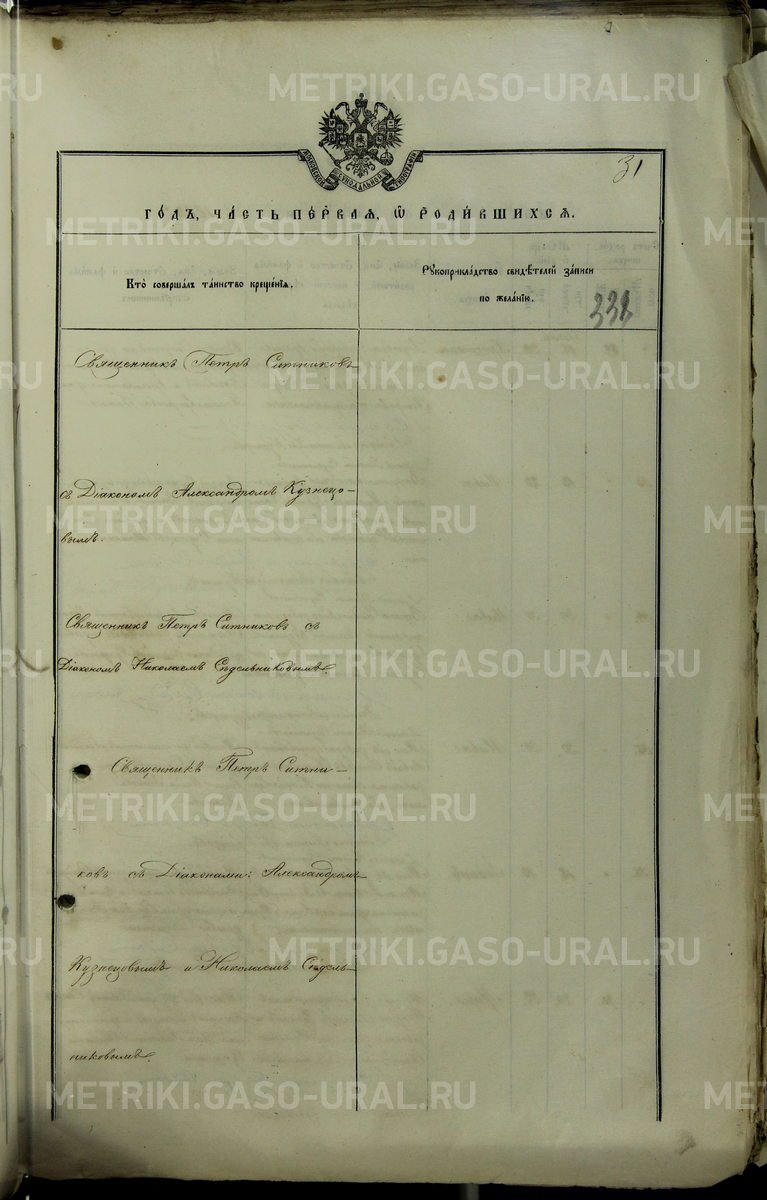 METRIKI.GASO-URAL.RU
МОСКОВСКОЙ СѴНОДАЛЬНОЙ ТИПОГРАФІИ
31
ГО́ДЪ, ЧА́СТЬ ПЕ́РВАЯ, Ѡ҆ РОДИ́ВШИХСЯ.
Кто̀ соверша́лъ та́инство креще́нїѧ.
Рꙋкоприкла́дство свидѣ́телей за́писи
по жела́нїю.
338
Священникъ Петръ Ситниковъ
съ Діакономъ Александромъ Кузнецо-
вымъ.
Священникъ Петръ Ситниковъ съ
Діакономъ Николаемъ Седельниковымъ.
Священникъ Петръ Ситни-
ковъ съ Діаконами: Александромъ
Кузнецовымъ и Николаемъ Седель-
никовымъ.